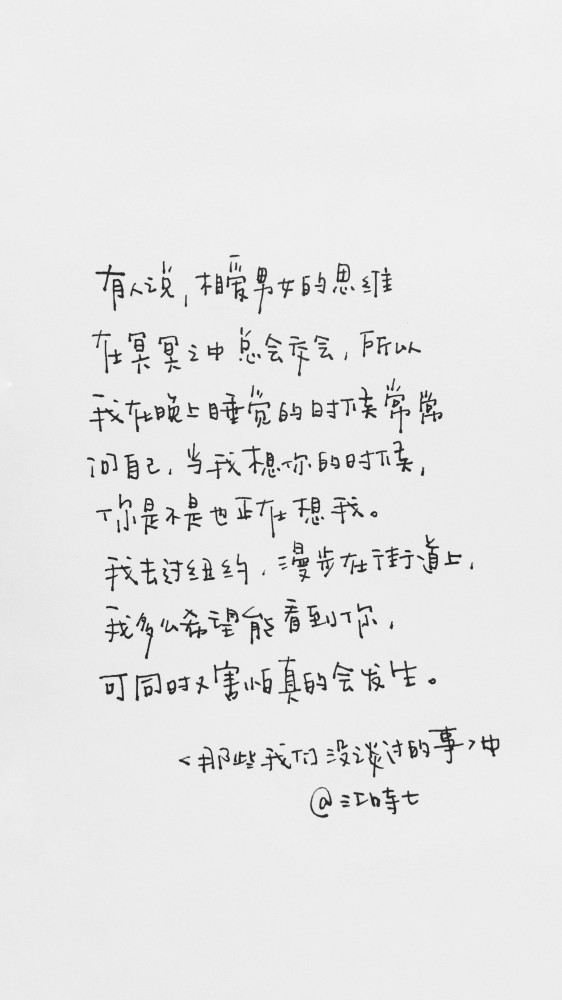 有人说，相爱男女的思维
在冥冥之中总会交会，所以
我在晚上睡觉的时候常常
问自己，当我想你的时候，
你是不是也正在想我。
我去过纽约，漫步在街道上，
我多么希望能看到你，
可同时又害怕真的会发生。
<那些我们没谈过的事>中
@江时七